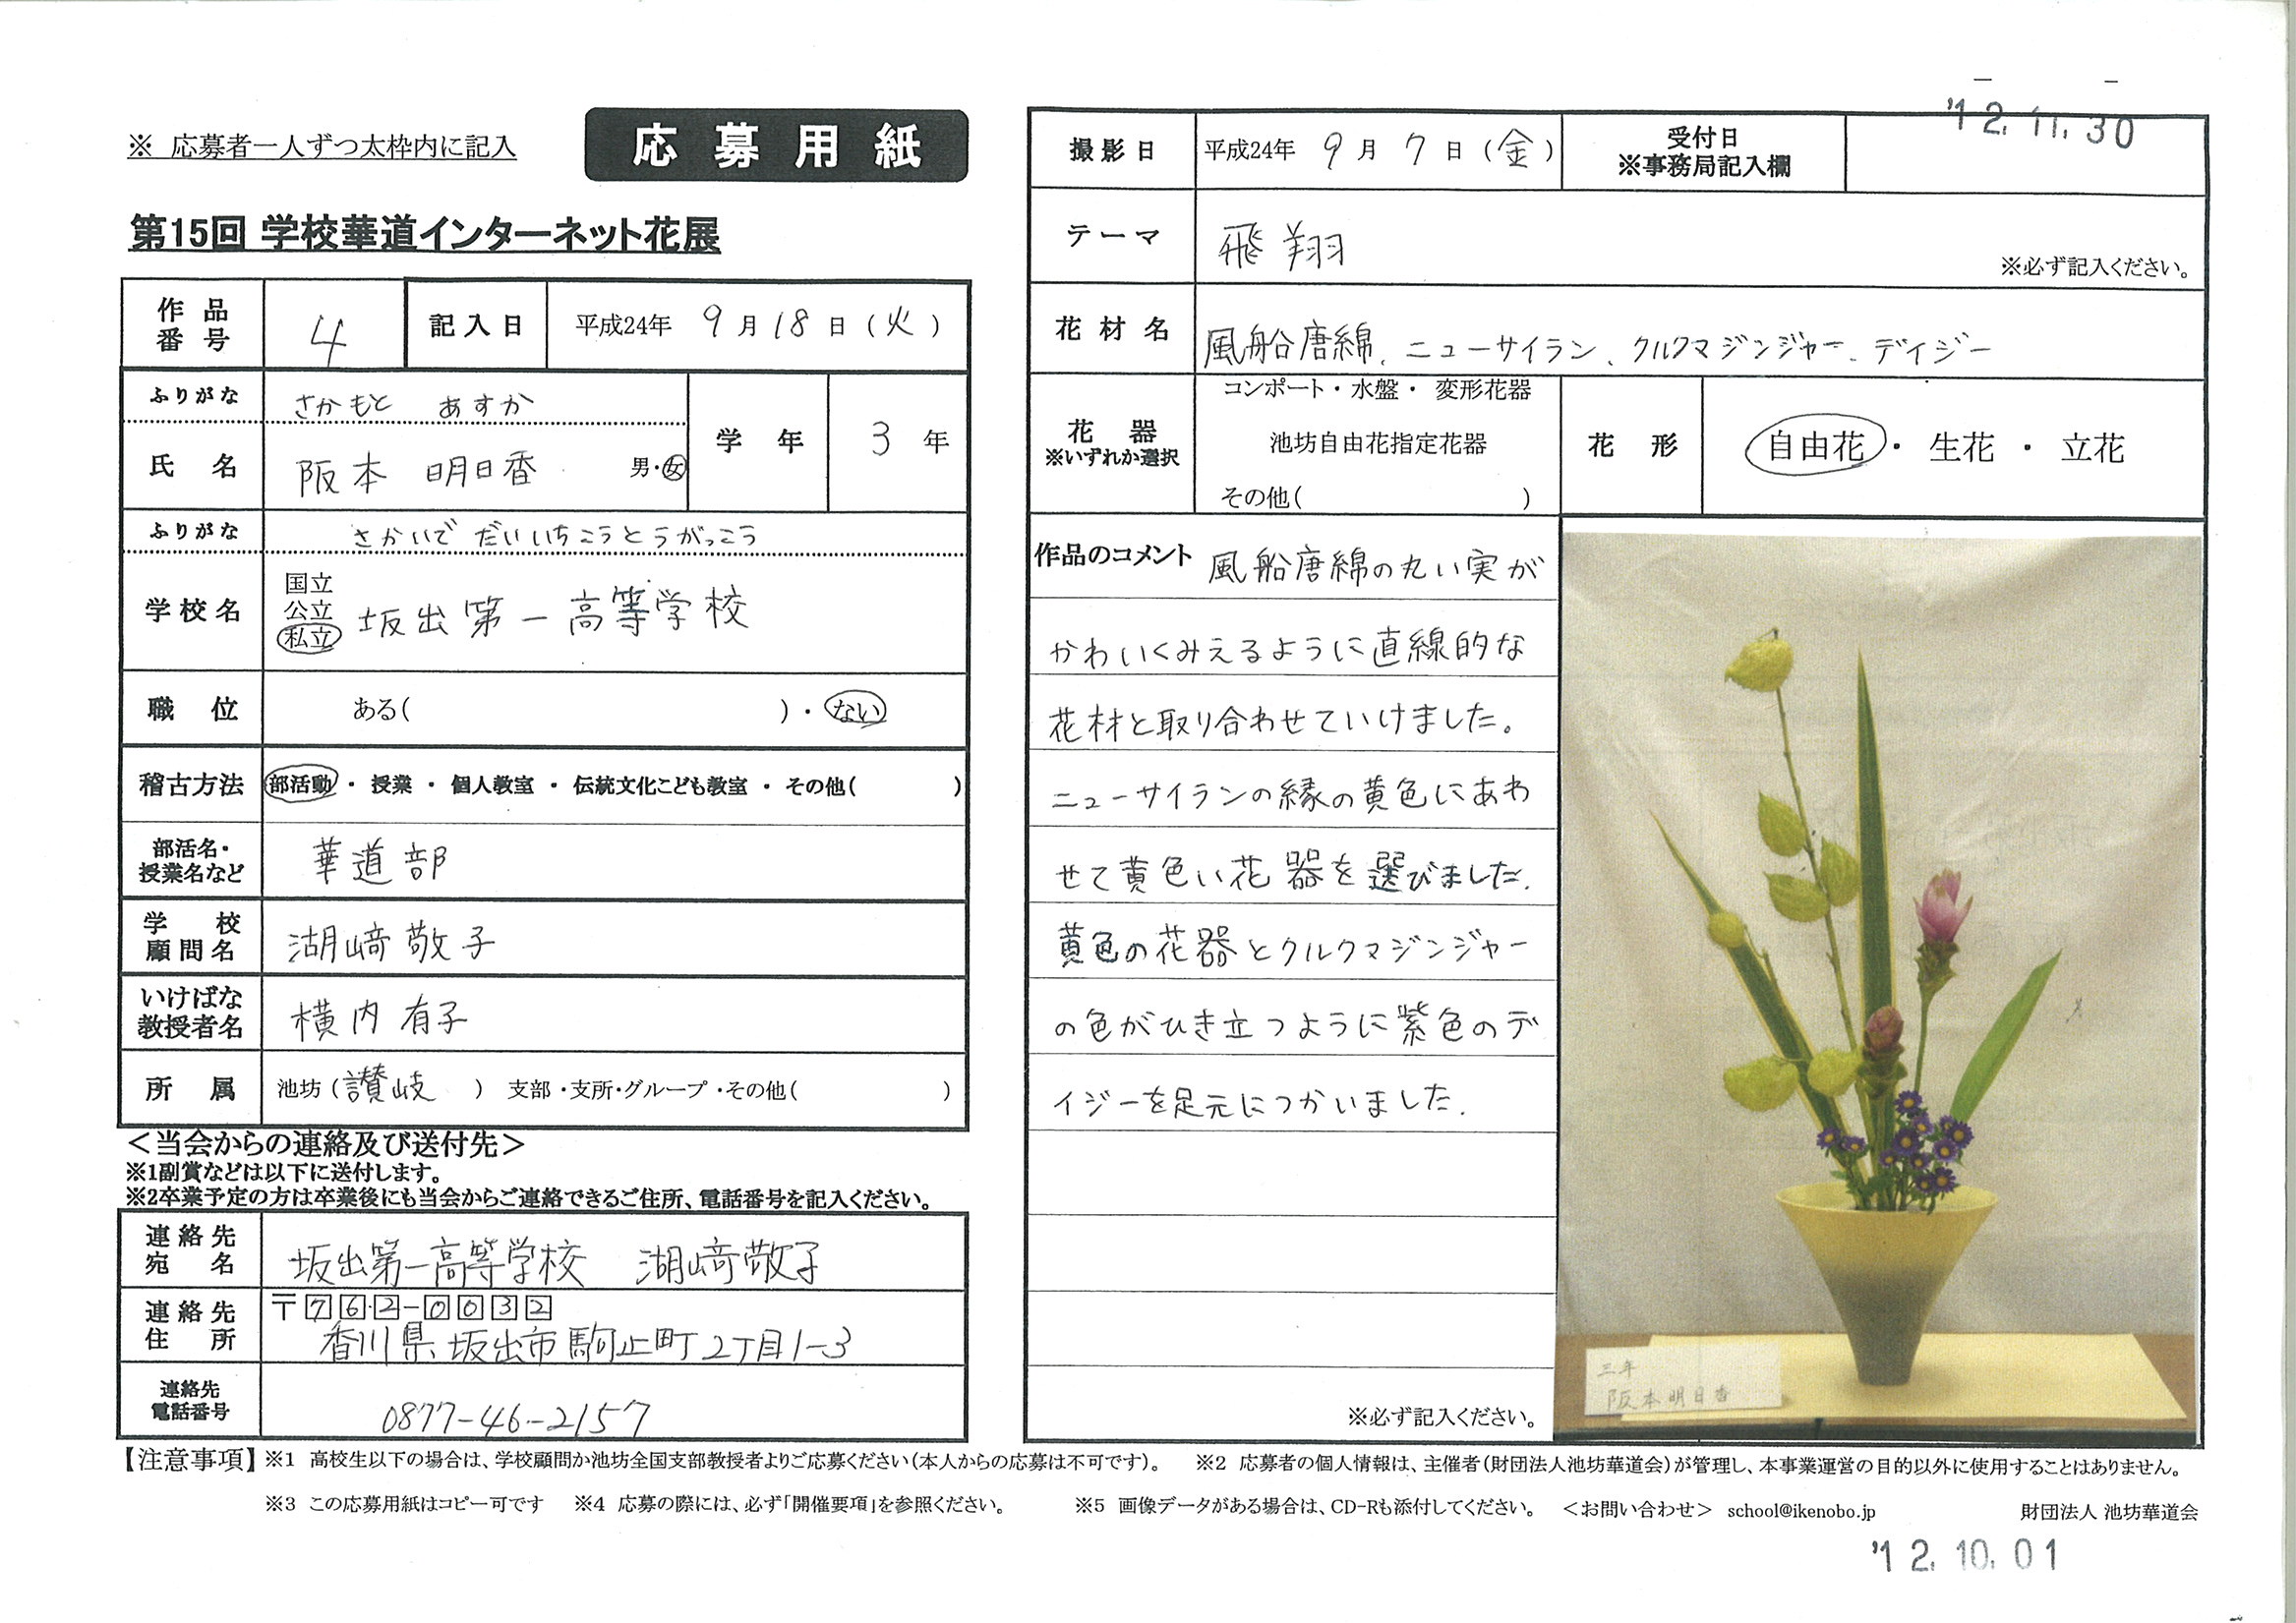 ※ 応募者一人ずつ太枠内に記入
応募用紙
第15回 学校華道インターネット花展
作品番号 4 記入日 平成24年 9月18日(火)
ふりがな さかもと あすか
氏名 阪本 明日香 男・女 学年 3年
ふりがな さかいで だいいちこうとうがっこう
学校名 国立 公立 私立 坂出第一高等学校
職位 ある( )・ない
稽古方法 部活動 ・ 授業 ・ 個人教室 ・ 伝統文化こども教室 ・ その他( )
部活名・授業名など 華道部
学校顧問名 湖﨑敬子
いけばな教授者名 横内有子
所属 池坊(讃岐 ) 支部・支所・グループ・その他( )
<当会からの連絡及び送付先>
※1副賞などは以下に送付します。
※2卒業予定の方は卒業後にも当会からご連絡できるご住所、電話番号を記入ください。
連絡先宛名 坂出第一高等学校 湖﨑敬子
連絡先住所 〒762-0032
香川県坂出市駒止町2丁目1-3
連絡先電話番号 0877-46-2157
'12.11.30
撮影日 平成24年 9月7日(金) 受付日 ※事務局記入欄
テーマ 飛翔 ※必ず記入ください。
花材名 風船唐綿、ニューサイラン、クルクマジンジャー、デイジー
花器 ※いずれか選択 コンポート・水盤・変形花器
池坊自由花指定花器
その他( )
花形 自由花・生花・立花
作品のコメント 風船唐綿の丸い実が
かわいくみえるように直線的な
花材と取り合わせていけました。
ニューサイランの縁の黄色にあわ
せて黄色い花器を選びました.
黄色の花器とクルクマジンジャー
の色がひき立つように紫色のデ
イジーを足元につかいました.
※必ず記入ください。
三年
阪本明日香
【注意事項】※1 高校生以下の場合は、学校顧問か池坊全国支部教授者よりご応募ください(本人からの応募は不可です)。 ※2 応募者の個人情報は、主催者(財団法人池坊華道会)が管理し、本事業運営の目的以外に使用することはありません。
※3 この応募用紙はコピー可です ※4 応募の際には、必ず「開催要項」を参照ください。 ※5 画像データがある場合は、CD-Rも添付してください。 <お問い合わせ> school@ikenobo.jp 財団法人 池坊華道会
'12.10.01